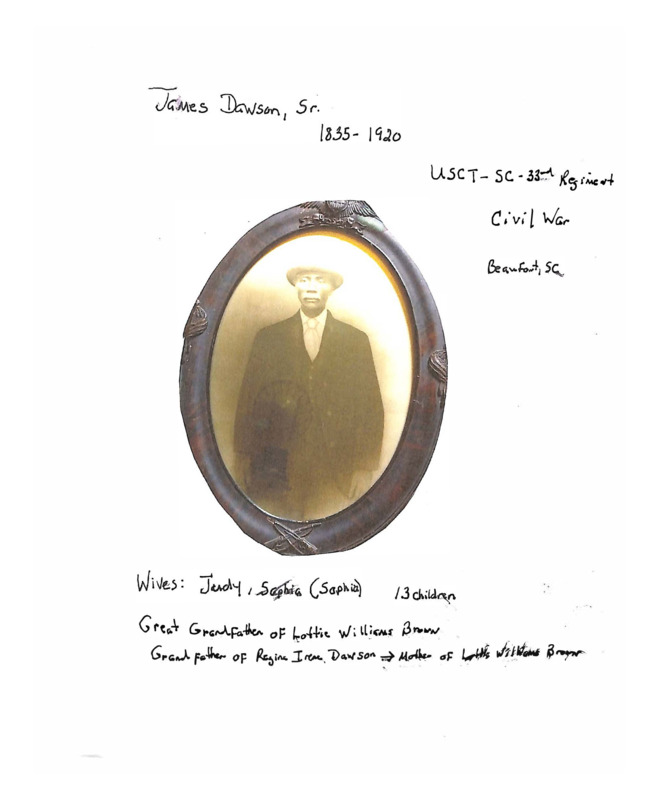 James Dawson, Sr.
1835- 1920
USCT- SC - 33rd Regiment
Civil War
Beaufort, SC
Wives: Jendy, Sophia (Sophia) 13 children
Great Grandfather of Lottie Williams Brown
Grandfather of Regina Irene Dawson → Mother of Lottie Williams Brown